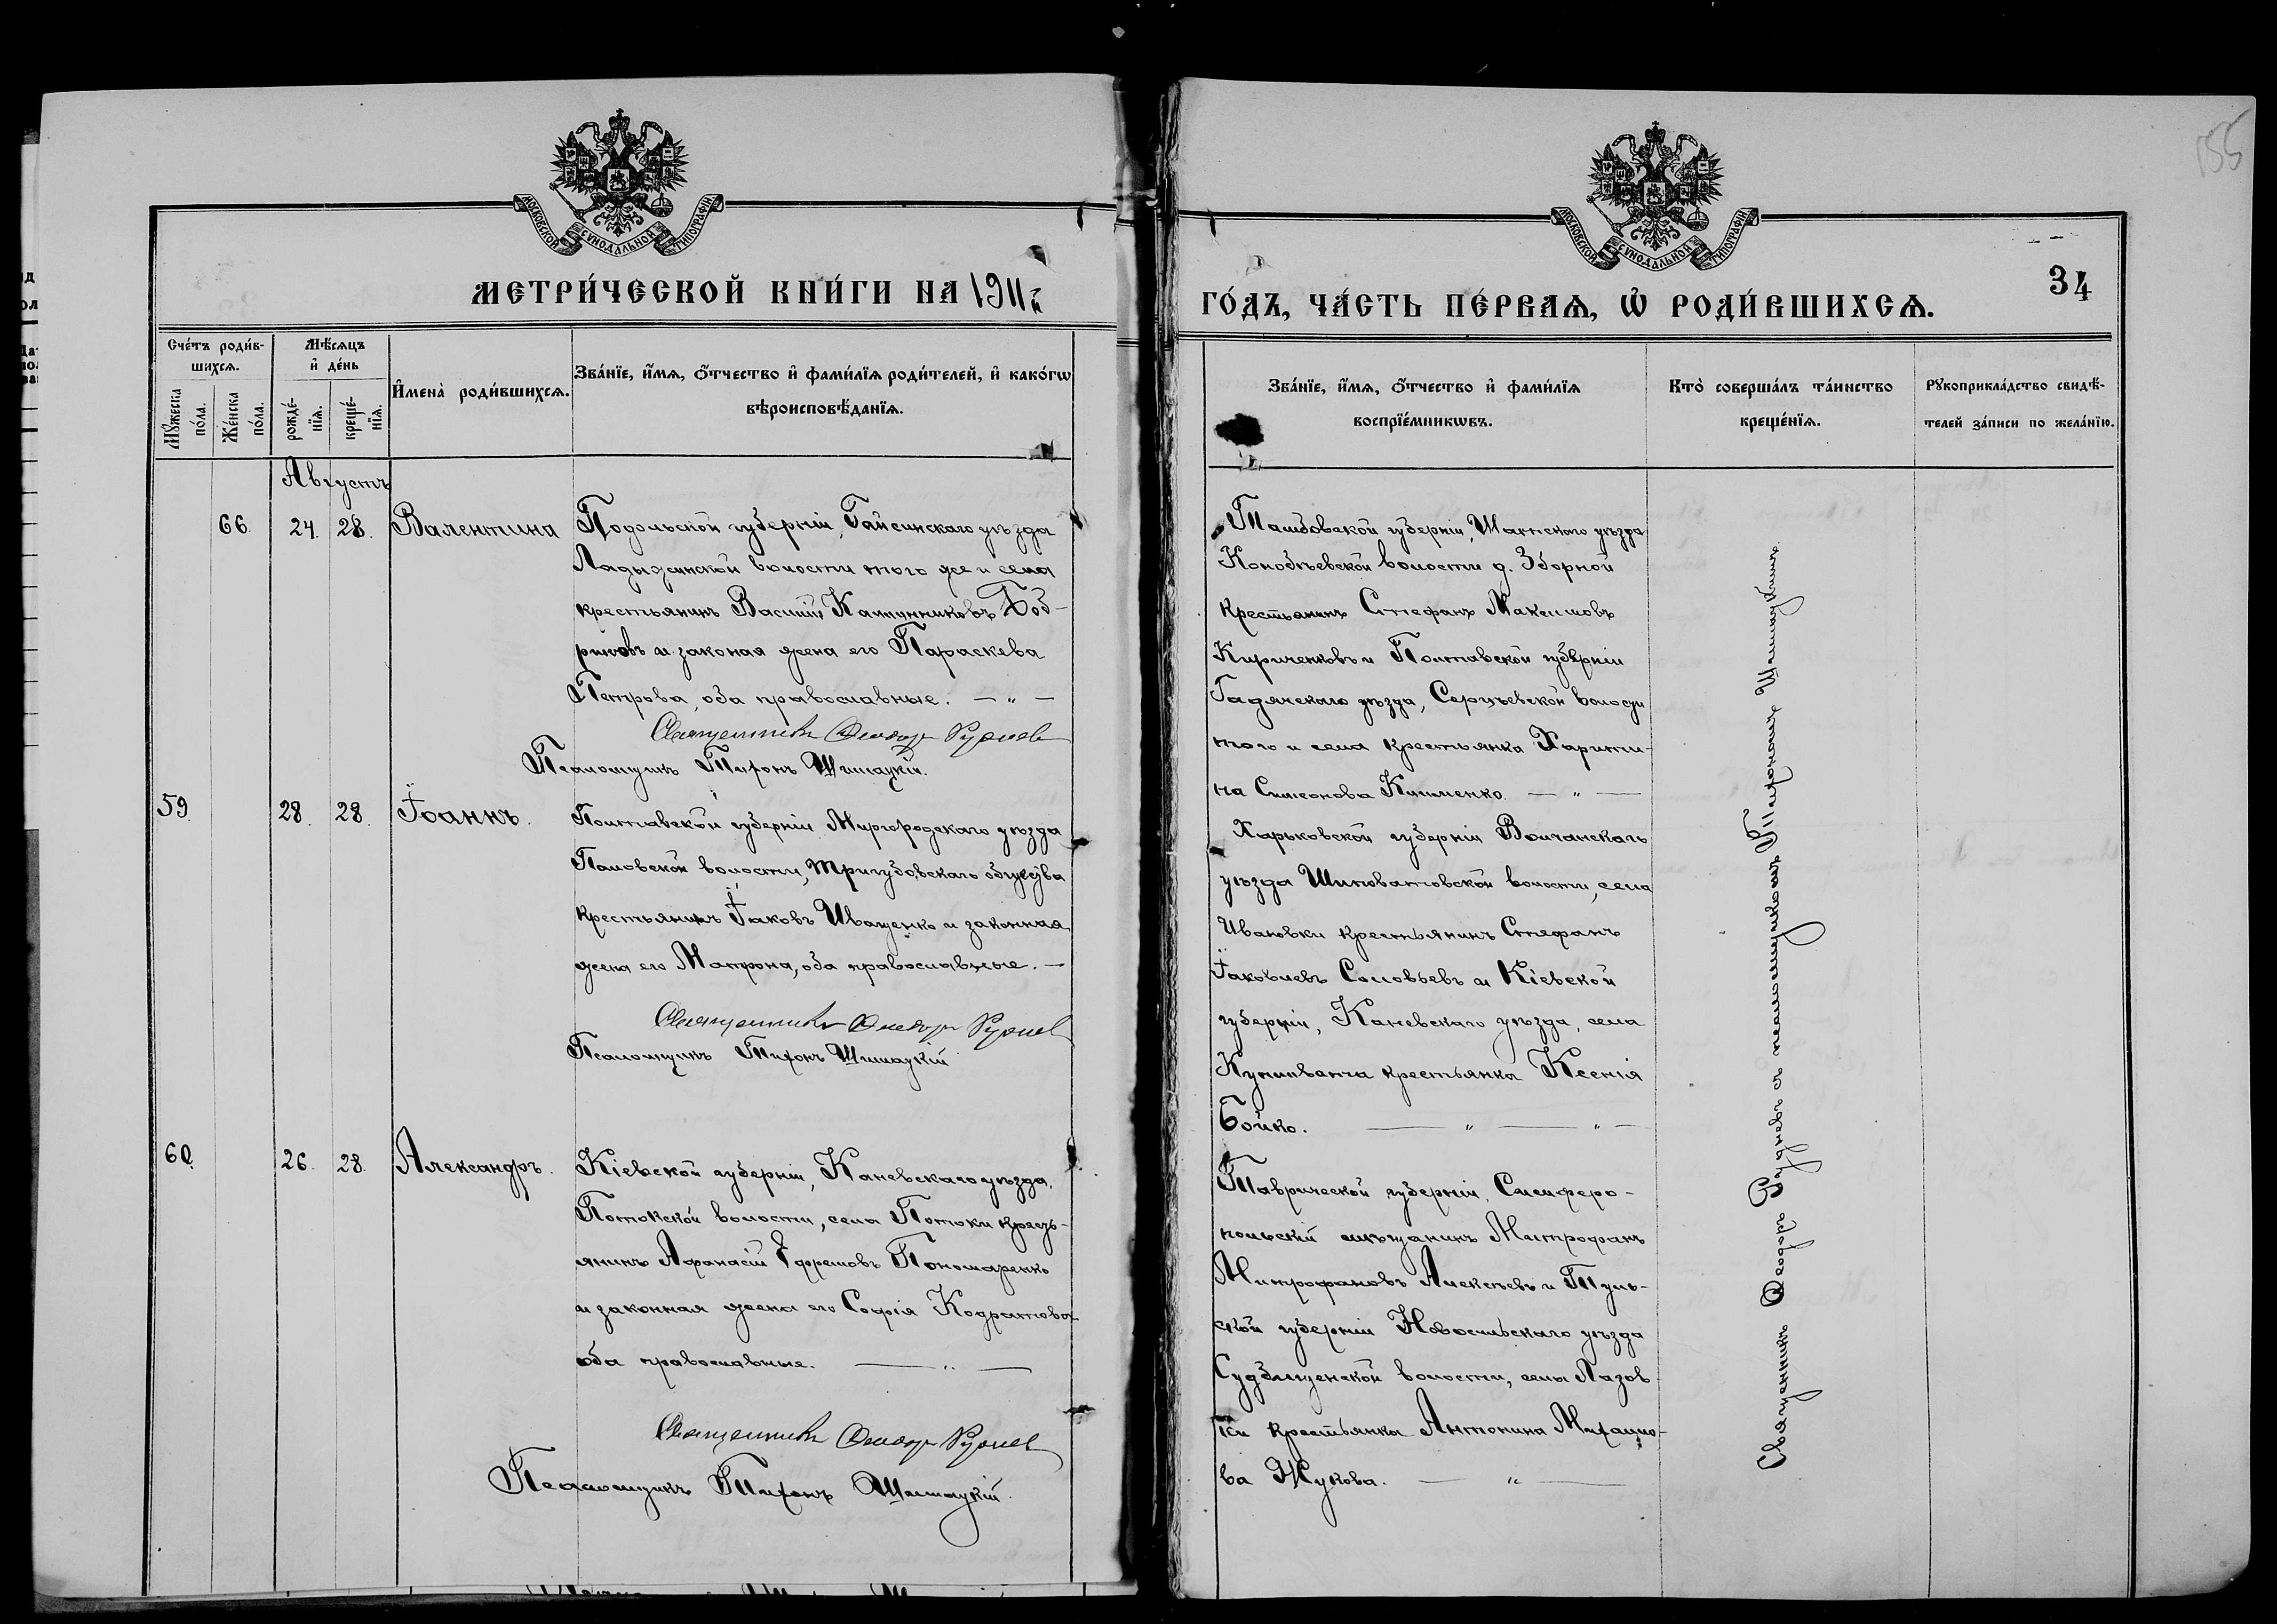 155
МОСКОВСКОЙ СУНОДАЛЬНОЙ ТИПОГРАФІИ
МОСКОВСКОЙ СУНОДАЛЬНОЙ ТИПОГРАФІИ
34
МЕТРИ́ЧЕСКОЙ КНИ́ГИ НА 1911й
ГО́ДЪ, ЧА́СТЬ ПЕ́РВАѦ, Ѡ РОДИ́ВШИХСѦ.
Сче́тъ роди́в-
шихсѧ.
Мꙋжеска
по́ла.
Же́нска
по́ла.
Мѣ́сѧцъ
и҆ де́нь
рожде́-
нїѧ.
креще́-
нїѧ.
И҆мена̀ роди́вшихсѧ.
Зва́нїе, и҆́мѧ, ѻ҆́тчество и҆ фами́лїѧ роди́телей, и҆ како́гѡ
вѣроисповѣ́данїѧ.
Зва́нїе, и҆́мѧ, ѻ҆́тчество и҆ фами́лїѧ
воспрїе́мникѡвъ.
Кто̀ соверша́лъ та́инство
креще́нїѧ.
Рꙋкоприкла́дство свидѣ́-
телей за́писи по жела́нїю.
Августъ
66. 24. 28. Валентина
Подольской губерніи, Гайсинскаго уѣзда
Ладыжинской волости того же и села
крестьянинъ Василій Боб-
ровъ и законая жена его Параскева
Петрова, оба православные. — „ —
Священникъ Ѳеодоръ Рудневъ
Псаломщикъ Тихонъ Шишацкій.
Тамбовской губерніи, Шатскаго уѣзда
Конобѣевской волости д. Зборной
крестьянинъ Стефанъ Максимовъ
Кириченковъ и Полтавской губерніи
Гадячскаго уѣзда, Сергѣевской волости
того и села крестьянка Харити-
на Симеонова Клименко. — „ —
59. 28. 28. Іоаннъ.
Полтавской губерніи Миргородскаго уѣзда
Поповской волости, Тригубовскаго общества
крестьянинъ Іаковъ Иващенко и законная
жена его Матрона, оба православные. —
Священникъ Ѳеодоръ Рудневъ
Псаломщикъ Тихонъ Шишацкій
Харьковской губерніи Волчанскаго
уѣзда Шиповатовской волости, села
Ивановки крестьянинъ Стефанъ
Іаковлевъ Соловьевъ и Кіевской
губерніи, Каневскаго уѣзда, села
крестьянка Ксенія
Бойко. — „ — „ —
60. 26. 28. Александръ.
Кіевской губерніи, Каневскаго уѣзда,
Потокской волости, села Потоки кресть-
янинъ Афанасій Ефремовъ Пономаренко
и законная жена его Софія Кодратова
оба православные. — „ —
Священникъ Ѳеодоръ Рудневъ
Псаломщикъ Тихонъ Шишацкій.
Таврической губерніи, Симферо-
польскій мѣщанинъ Митрофанъ
Митрофановъ Алексѣевъ и Туль-
ской губерніи Новосильскаго уѣзда
Судбищенской волости, селы Лазов
ки крестьянка Антонина Михаило-
ва Жукова. — „ —
Священникъ Ѳеодоръ Рудневъ съ псаломщикомъ Тихономъ Шишацкимъ